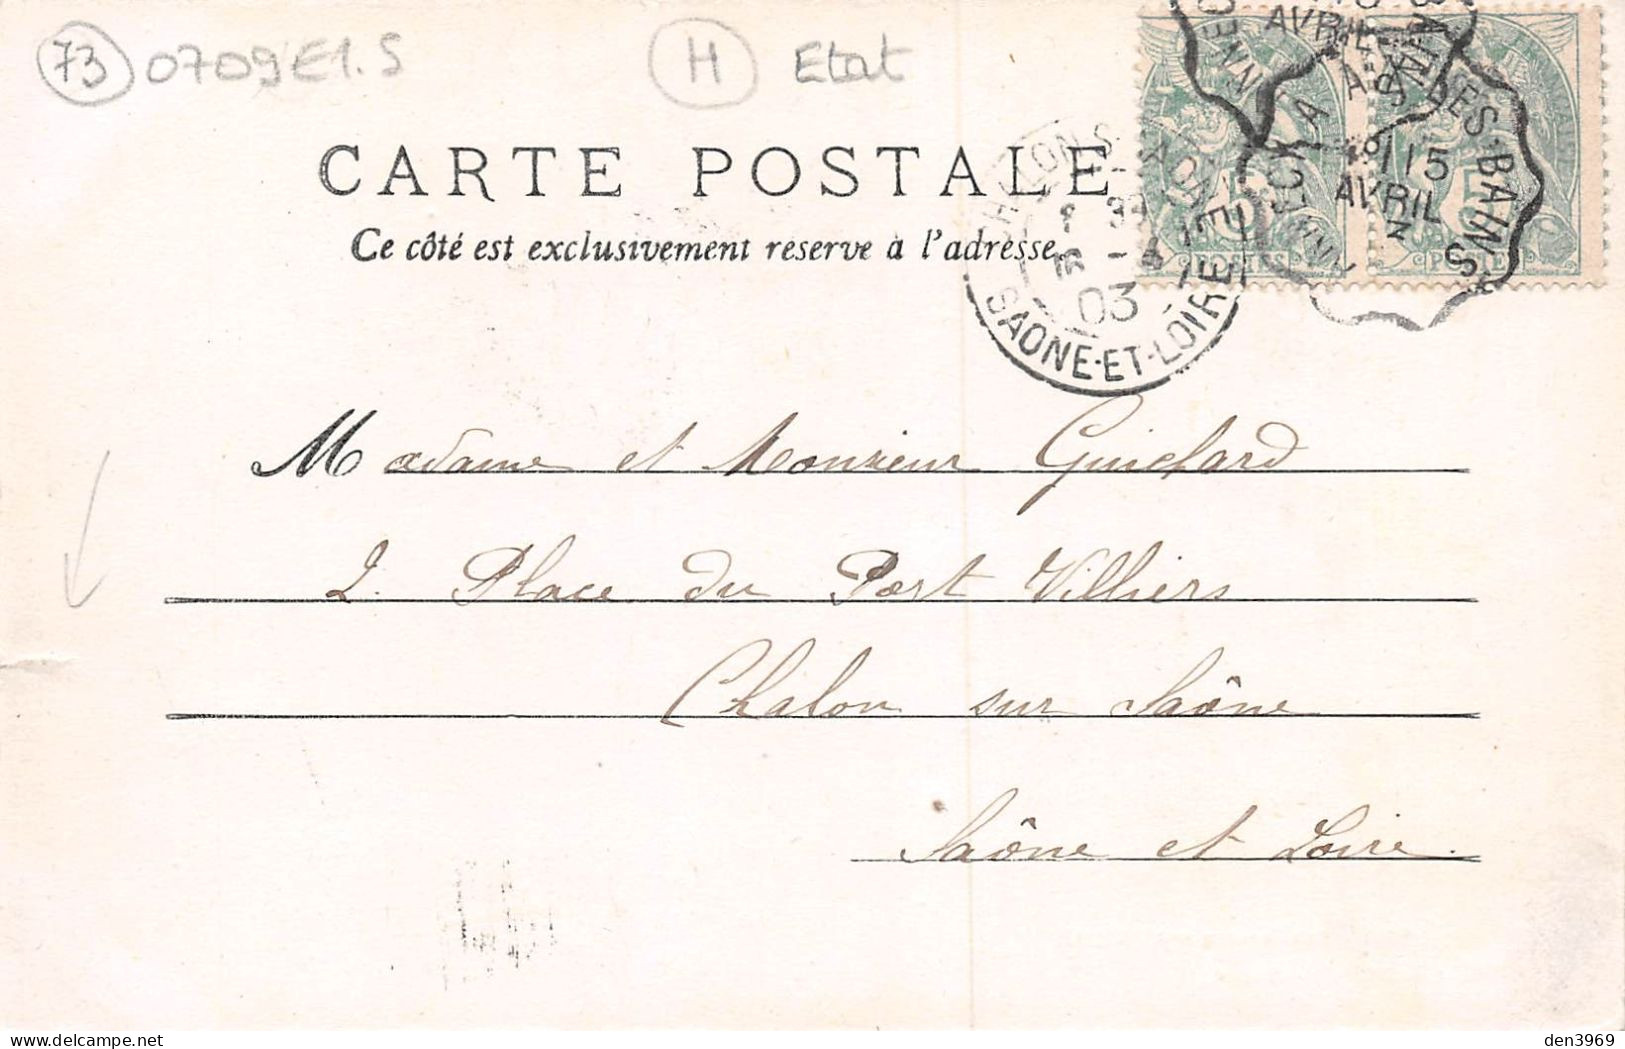 73 0709E1.S H Etat
CARTE POSTALE
Ce côté est exclusivement reserve à l'adresse
CHALON S. SAONE
16 - 4
03
SAONE-ET-LOIRE
AVRIL
15
AVRIL
BAINS
5
POSTES
5
Madame et Monsieur Guichard
2. Place du Port Villiers
Chalon sur Saône
Saône et Loire.
den3969